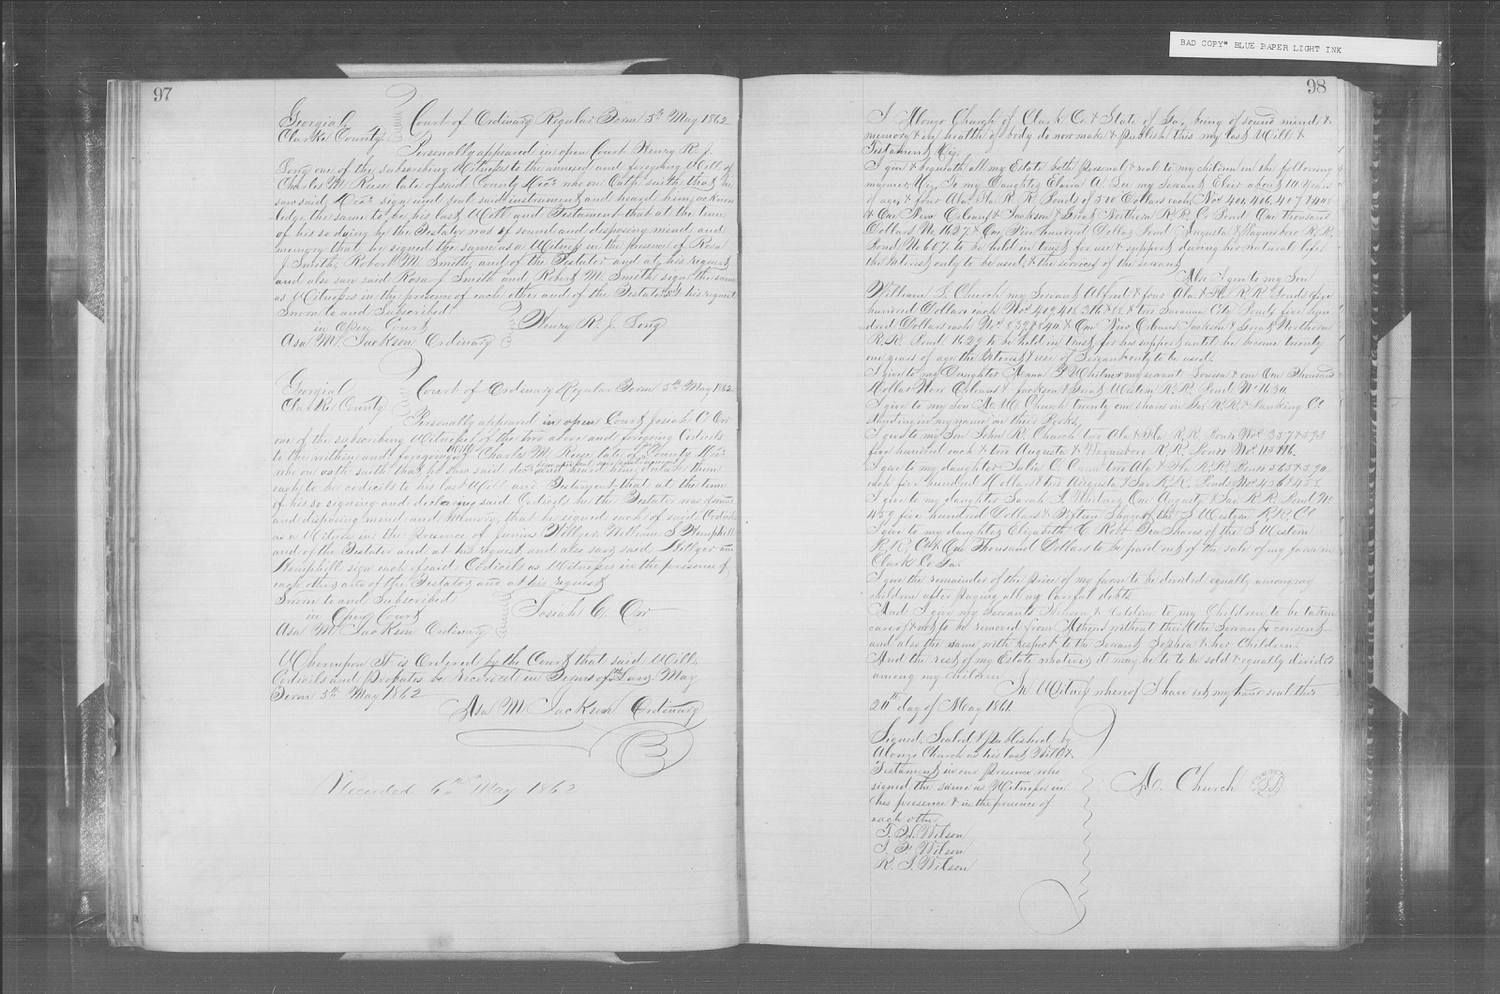 BAD COPY* BLUE PAPER LIGHT INK
97
Georgia
Clarke County
Court of Ordinary Regular Term 5th May 1862
Personally appeared in open Court Henry R. J.
Long one of the subscribing Witnesses to the annexed and foregoing Will of
Charles M. Reese late of said County Decd who on Oath saith that he
saw said Decd sign and seal said instrument and heard him acknow
ledge the same to be his last Will and Testament that at the time
of his so doing by the Testator was of sound and disposing mind and
memory that he signed the same as a Witness in the presence of Rosa
J Smith, Robert M. Smith, and of the Testator and at his request
and also saw said Rosa J Smith and Robert M. Smith sign the same
as Witnesses in the presence of each other and of the Testator & at his request
Sworn to and Subscribed
in Open Court
Asa M. Jackson Ordinary
Henry R. J. Long
Georgia
Clarke County
Court of Ordinary Regular Term 5th May 1862
Personally appeared in open Court Josiah C. Orr
one of the subscribing Witnesses of the two above and foregoing Codicils
to the within and foregoing Will of Charles M. Reese late of said County Decd
who on oath saith that he saw said decd and heard him declare them
each to be codicils to his last Will and Testament that at the time
of his so signing and declaring said Codicils he the Testator was of sound
and disposing mind and Memory, that he signed each of said Codicils
as a Witness in the presence of James Willger William S Hemphill
and of the Testator and at his request and also saw said Willger and
Hemphill sign each of said Codicils as Witnesses in the presence of
each other and of the Testator and at his request
Sworn to and Subscribed
in Open Court
Asa M. Jackson Ordinary
Josiah C. Orr
Whereupon It is Ordered by the Court that said Will
Codicils and Probates be Recorded in Terms of the Law. May
Term 5th May 1862
Asa M Jackson Ordinary
Recorded 6th May 1862
98
I Alonzo Church of Clark Co & State of Ga, being of sound mind &
memory & in health of body do now make & publish this my last Will &
Testament Viz,
I give & bequeath all my Estate both personal & real to my children in the following
manner, Viz, To my Daughter Elvira A. Lee my servant Elvir about 10 years
of age & four Ala & Fla R. R. Bonds of 500 Dollars each Nos 404, 406, 407 & 408
& One New Orleans & Jackson & Great Northern R.R. Co Bond One Thousand
Dollars No 1627 & One Five hundred Dollar Bond Augusta & Waynesboro R.R.
Bond No 607 to be held in trust for use & support during her natural life
the interest only to be used & the services of the servant
Also I give to my Son
William L. Church my Servant Alfred & four Ala & Fla R.R. Bonds five
hundred Dollars each Nos 409 & two Savanna City Bonds five hun
dred Dollars each Nos 839 & 840 & One New Orleans Jackson & Great Northern
R.R. Bond 1629 to be held in trust for his support until he become twenty
one years of age the Interest & use of Servant only to be used.
I give to my Daughter Anna P Whitner my servant Louisa & one One Thousand
Dollar New Orleans & Jackson & Great Western R.R. Bond No 1630.
I give to my son A. W. Church twenty one shares in Ga R.R. & Banking Co
standing in my name on their Books,
I give to my Son John R. Church two Ala & Fla R.R. Bonds Nos
five hundred each & two Augusta & Waynesboro R.R. Bonds Nos
I give to my daughter Julia C. Croom two Ala & Fla R.R. Bonds
each five hundred Dollars & two Augusta & Sav R.R. Bonds Nos
I give to my daughter Sarah J. Whitner One Augusta & Sav R R Bond No
459 five hundred Dollars & fifteen Shares of the S Western R.R. Co
I give to my daughter Elizabeth C. Robb Ten Shares of the S Western
R.R. Co & One Thousand Dollars to be paid out of the sale of my farm in
Clark Co Ga.
I give the remainder of the price of my farm to be divided equally among my
children after paying all my lawful debts
And I give my Servants & to my Children to be taken
care of & not to be removed from Athens without their the Servants consent
and also the same with respect to the Servant Sophia & her Children.
And the rest of my Estate whatever it may be to be sold & equally divided
among my children
In Witness whereof I have set my hand seal this
24th day of May 1861
Signed, Sealed & published by
Alonzo Church as his last Will &
Testament in our presence who
signed the same as Witnesses in
his presence & in the presence of
each other
T. H. Wilson
J. F. Wilson
R. S. Wilson
A. Church